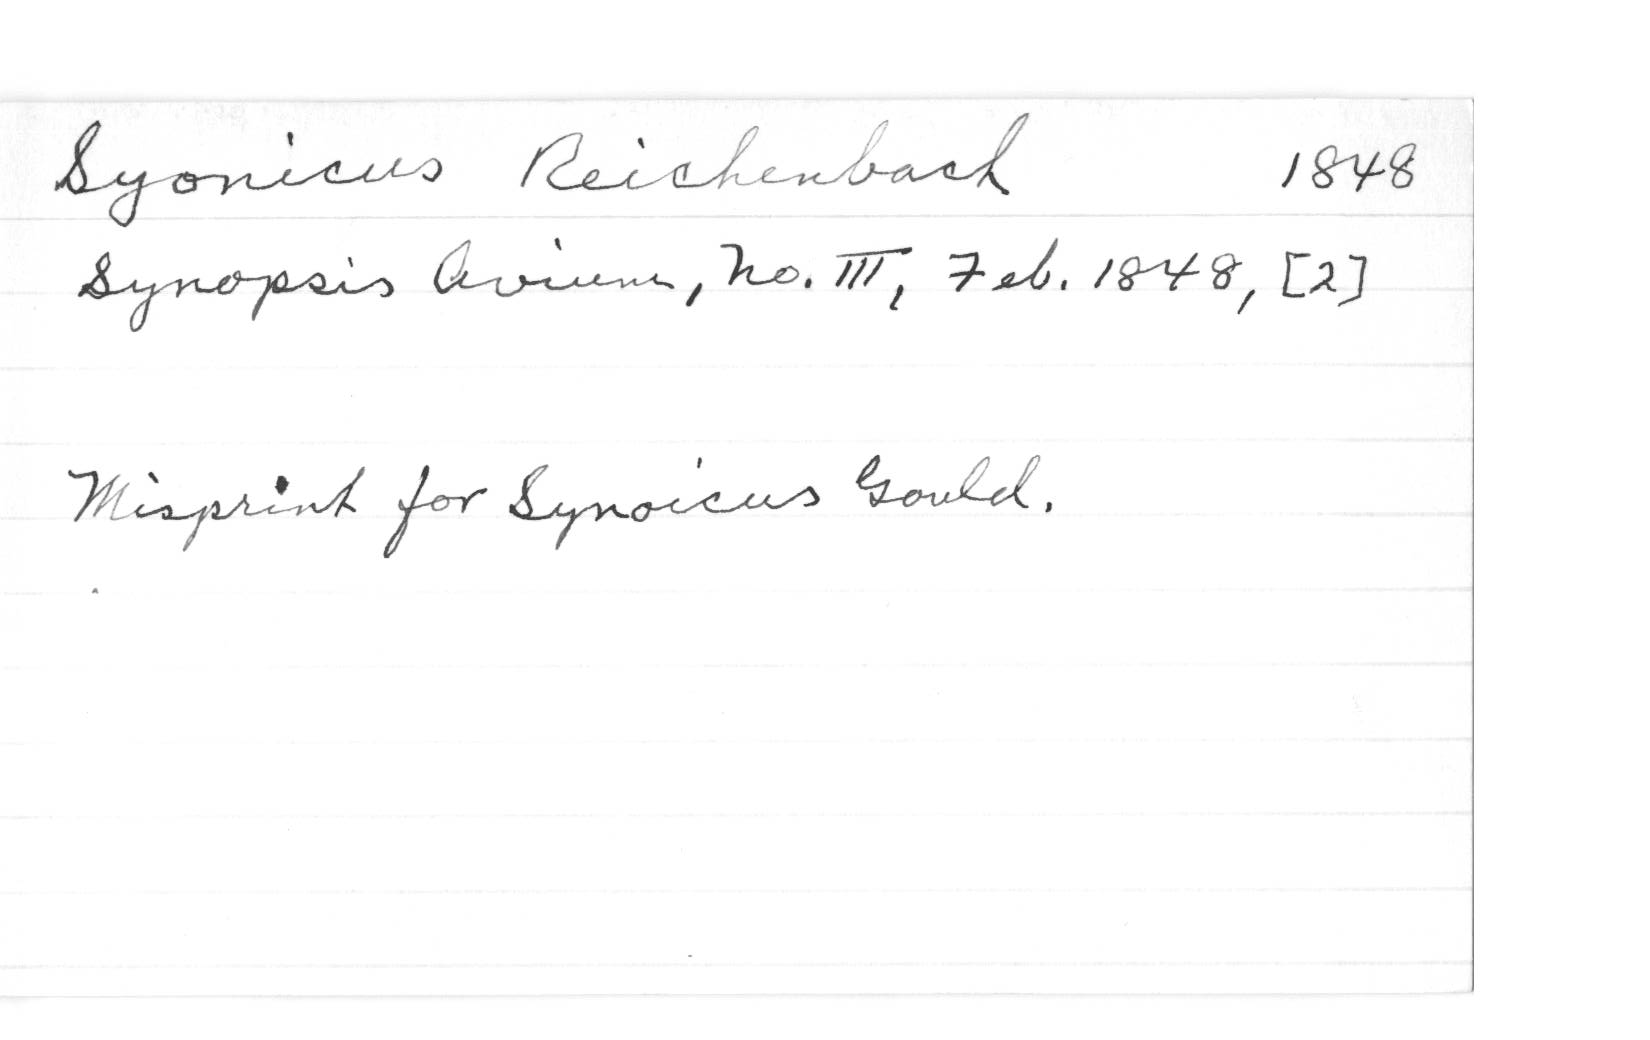 Syonicus Reichenbach 1848
Synopsis Avium, No. III, Feb. 1848, [2]
Misprint for Synoicus Gould.